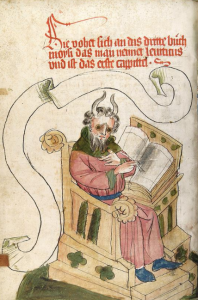 Hie vohet sich an dis dritte bůch
moysi das man nennet leuiticus
vnd ist das erste cappittel